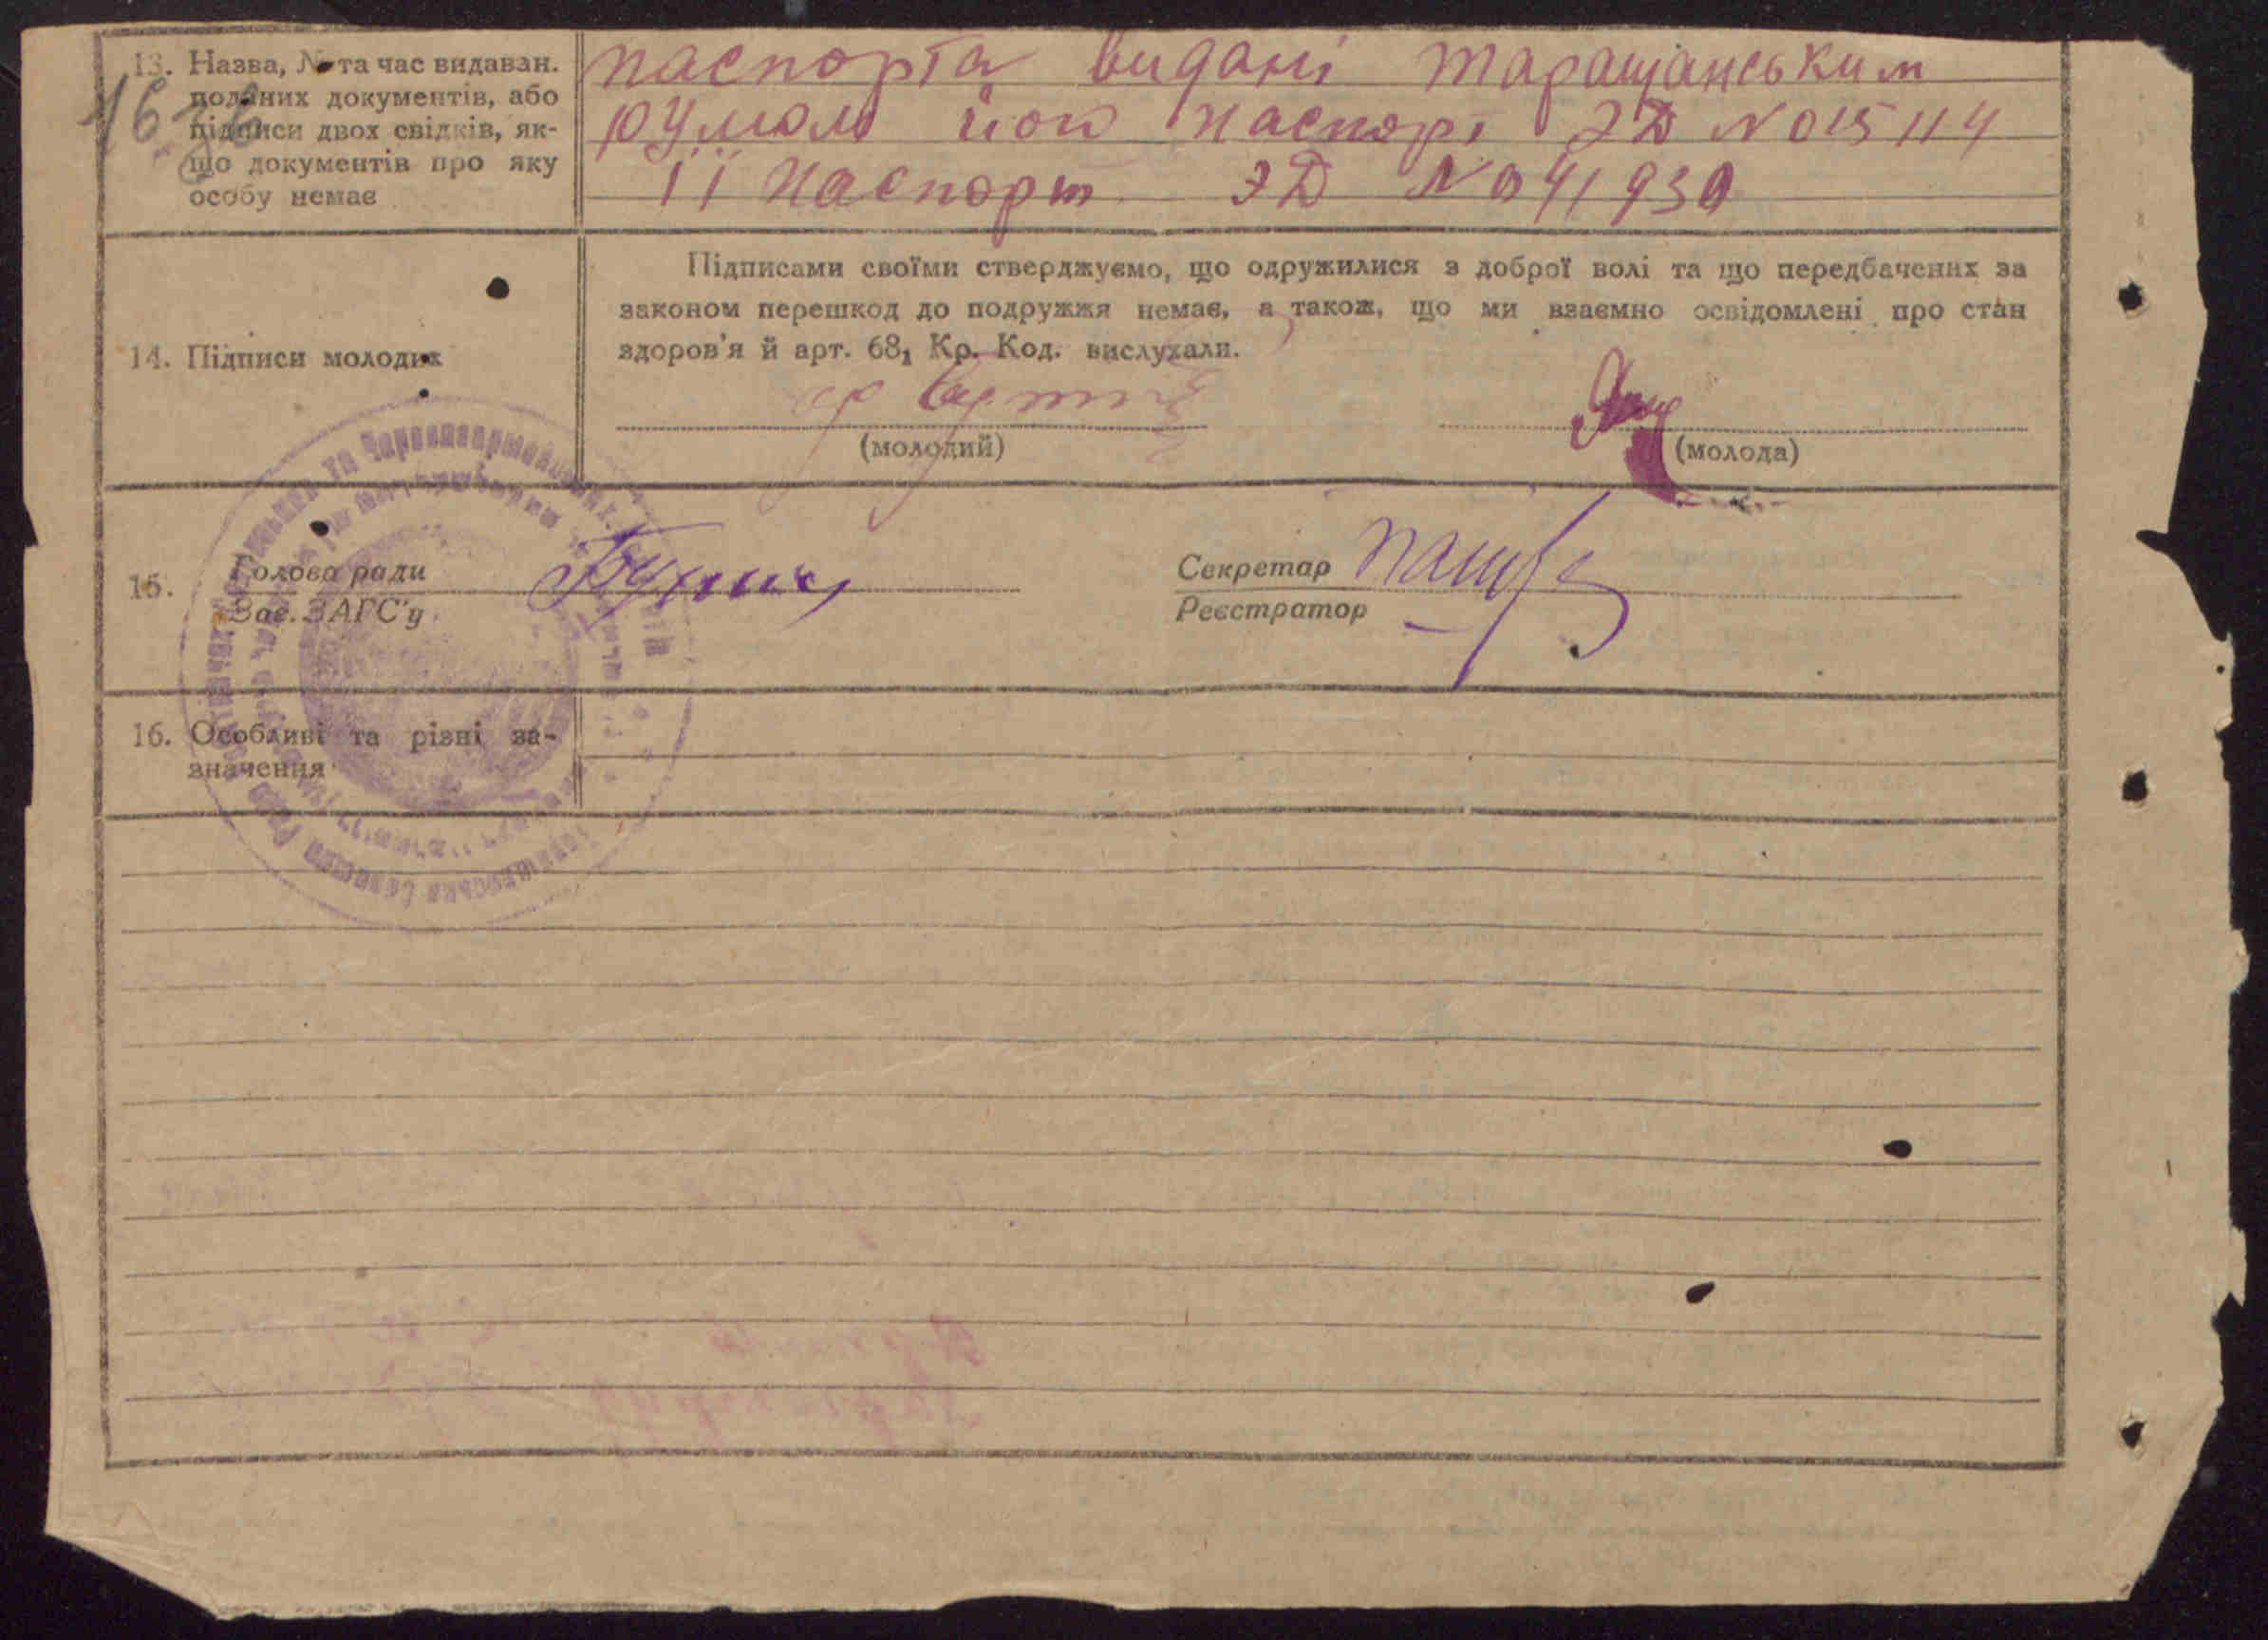 13. Назва, № та час видаван.
поданих документів, або
підписи двох свідків, як-
що документів про яку
особу немає
паспорта видані Таращанським
РУМом його паспорт ЭД № 015114
її паспорт ЭД № 041930
14. Підписи молодих
Підписами своїми стверджуємо, що одружилися з доброї волі та що передбачених за
законом перешкод до подружжя немає, а також, що ми взаємно освідомлені про стан
здоров'я й арт. 68₁ Кр. Код. вислухали.
(молодий)
(молода)
15. Голова ради
Зав. ЗАГС'у
Секретар
Реєстратор
16. Особливі та різні за-
значення